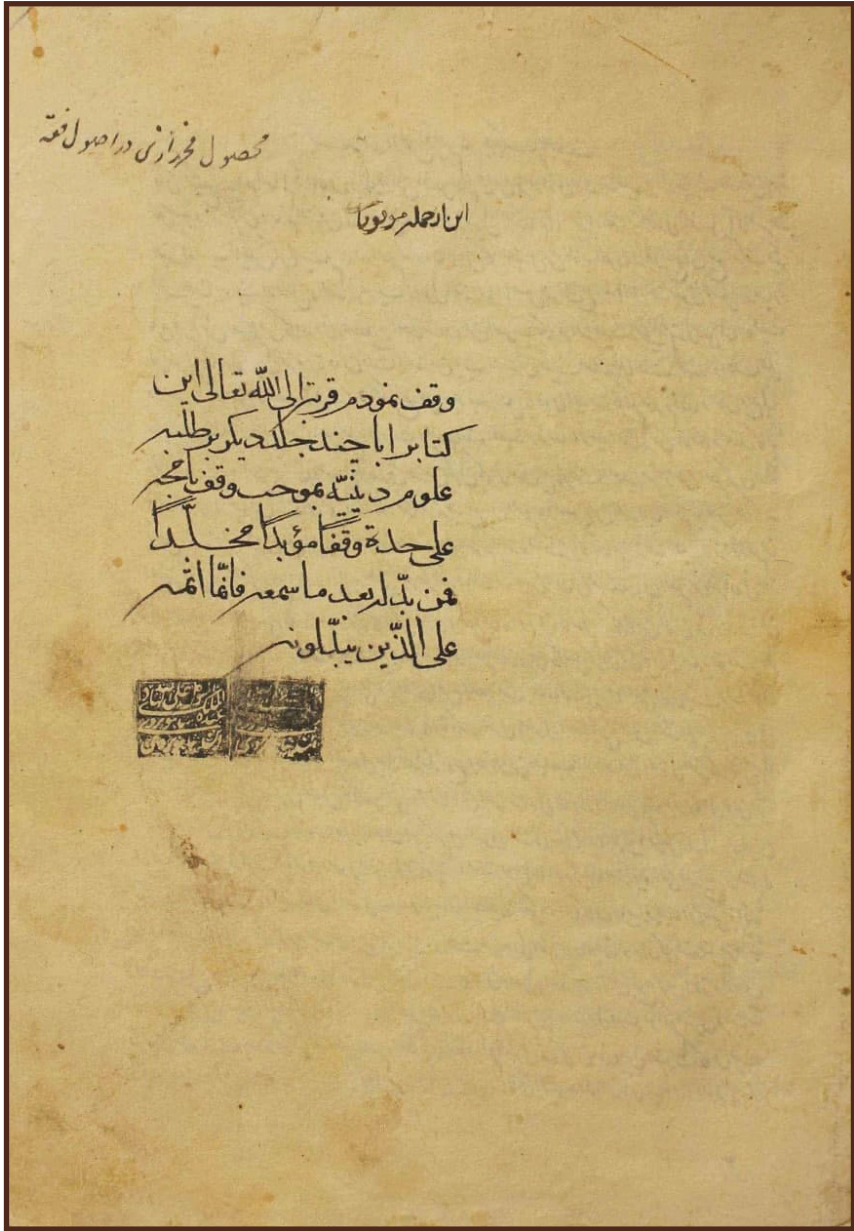 محصول فخر رازی در اصول فقه
این از جمله موقوفات
وقف نمودم قربة الی الله تعالی این
کتابرا با چند جلد دیگر بر طلبه
علوم دینیّه بموجب وقف نامچه
علی حدة وقفًا مؤبدًا مخلّدًا
فمن بدّله بعد ما سمعه فانّما اثمه
علی الذّین یبدّلونه